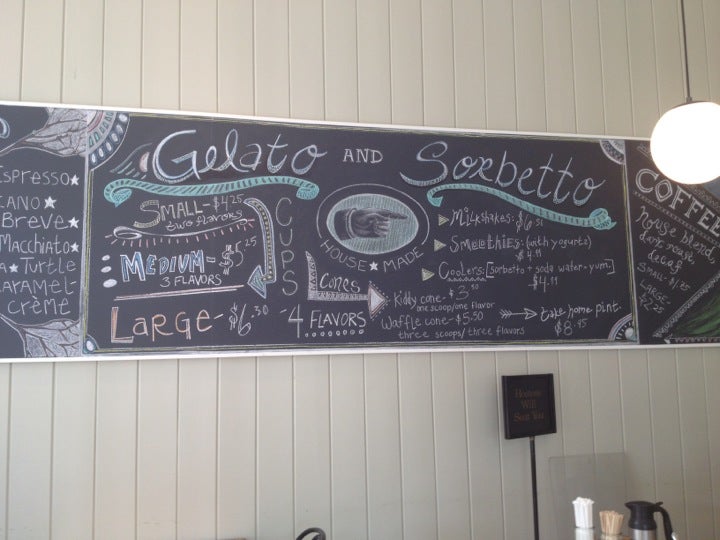 Espresso
CANO
Breve
Macchiato
Turtle
CARAMEL-
CRÈME
Gelato AND Sorbetto
SMALL - $4.25
two flavors
MEDIUM - $5.25
3 FLAVORS
LARGE - $6.50 - 4 FLAVORS
CUPS
HOUSE MADE
CONES
Kiddy cone - $3
one scoop/one flavor
Waffle cone - $5.50
three scoops/three flavors
Milkshakes: $6.51
Smoothies: (with yogurt)
$4.11
Coolers: [Sorbetto + soda water - yum]
$4.11
take home pint.
$8.45
COFFEE
house blend
dark roast
decaf
SMALL-
$1.75
LARGE-
$2.25
Hostess
Will
Seat You